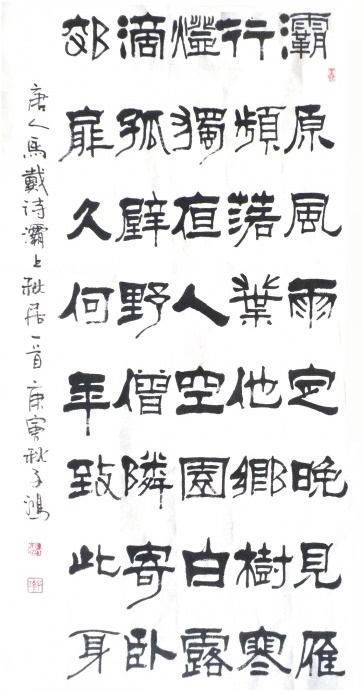 灞原風雨定晚見雁
行頻落葉他鄉樹寒
燈獨夜人空園白露
滴孤壁野僧隣寄卧
郊扉久何年致此身
唐人馬戴诗灞上秋居一首庚寅秋子鴻